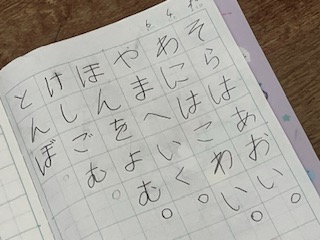 6. 4.
そらはあおい。
あにはこわい。
やまへいく。
ほんをよむ。
けしごむ。
とんぼ。